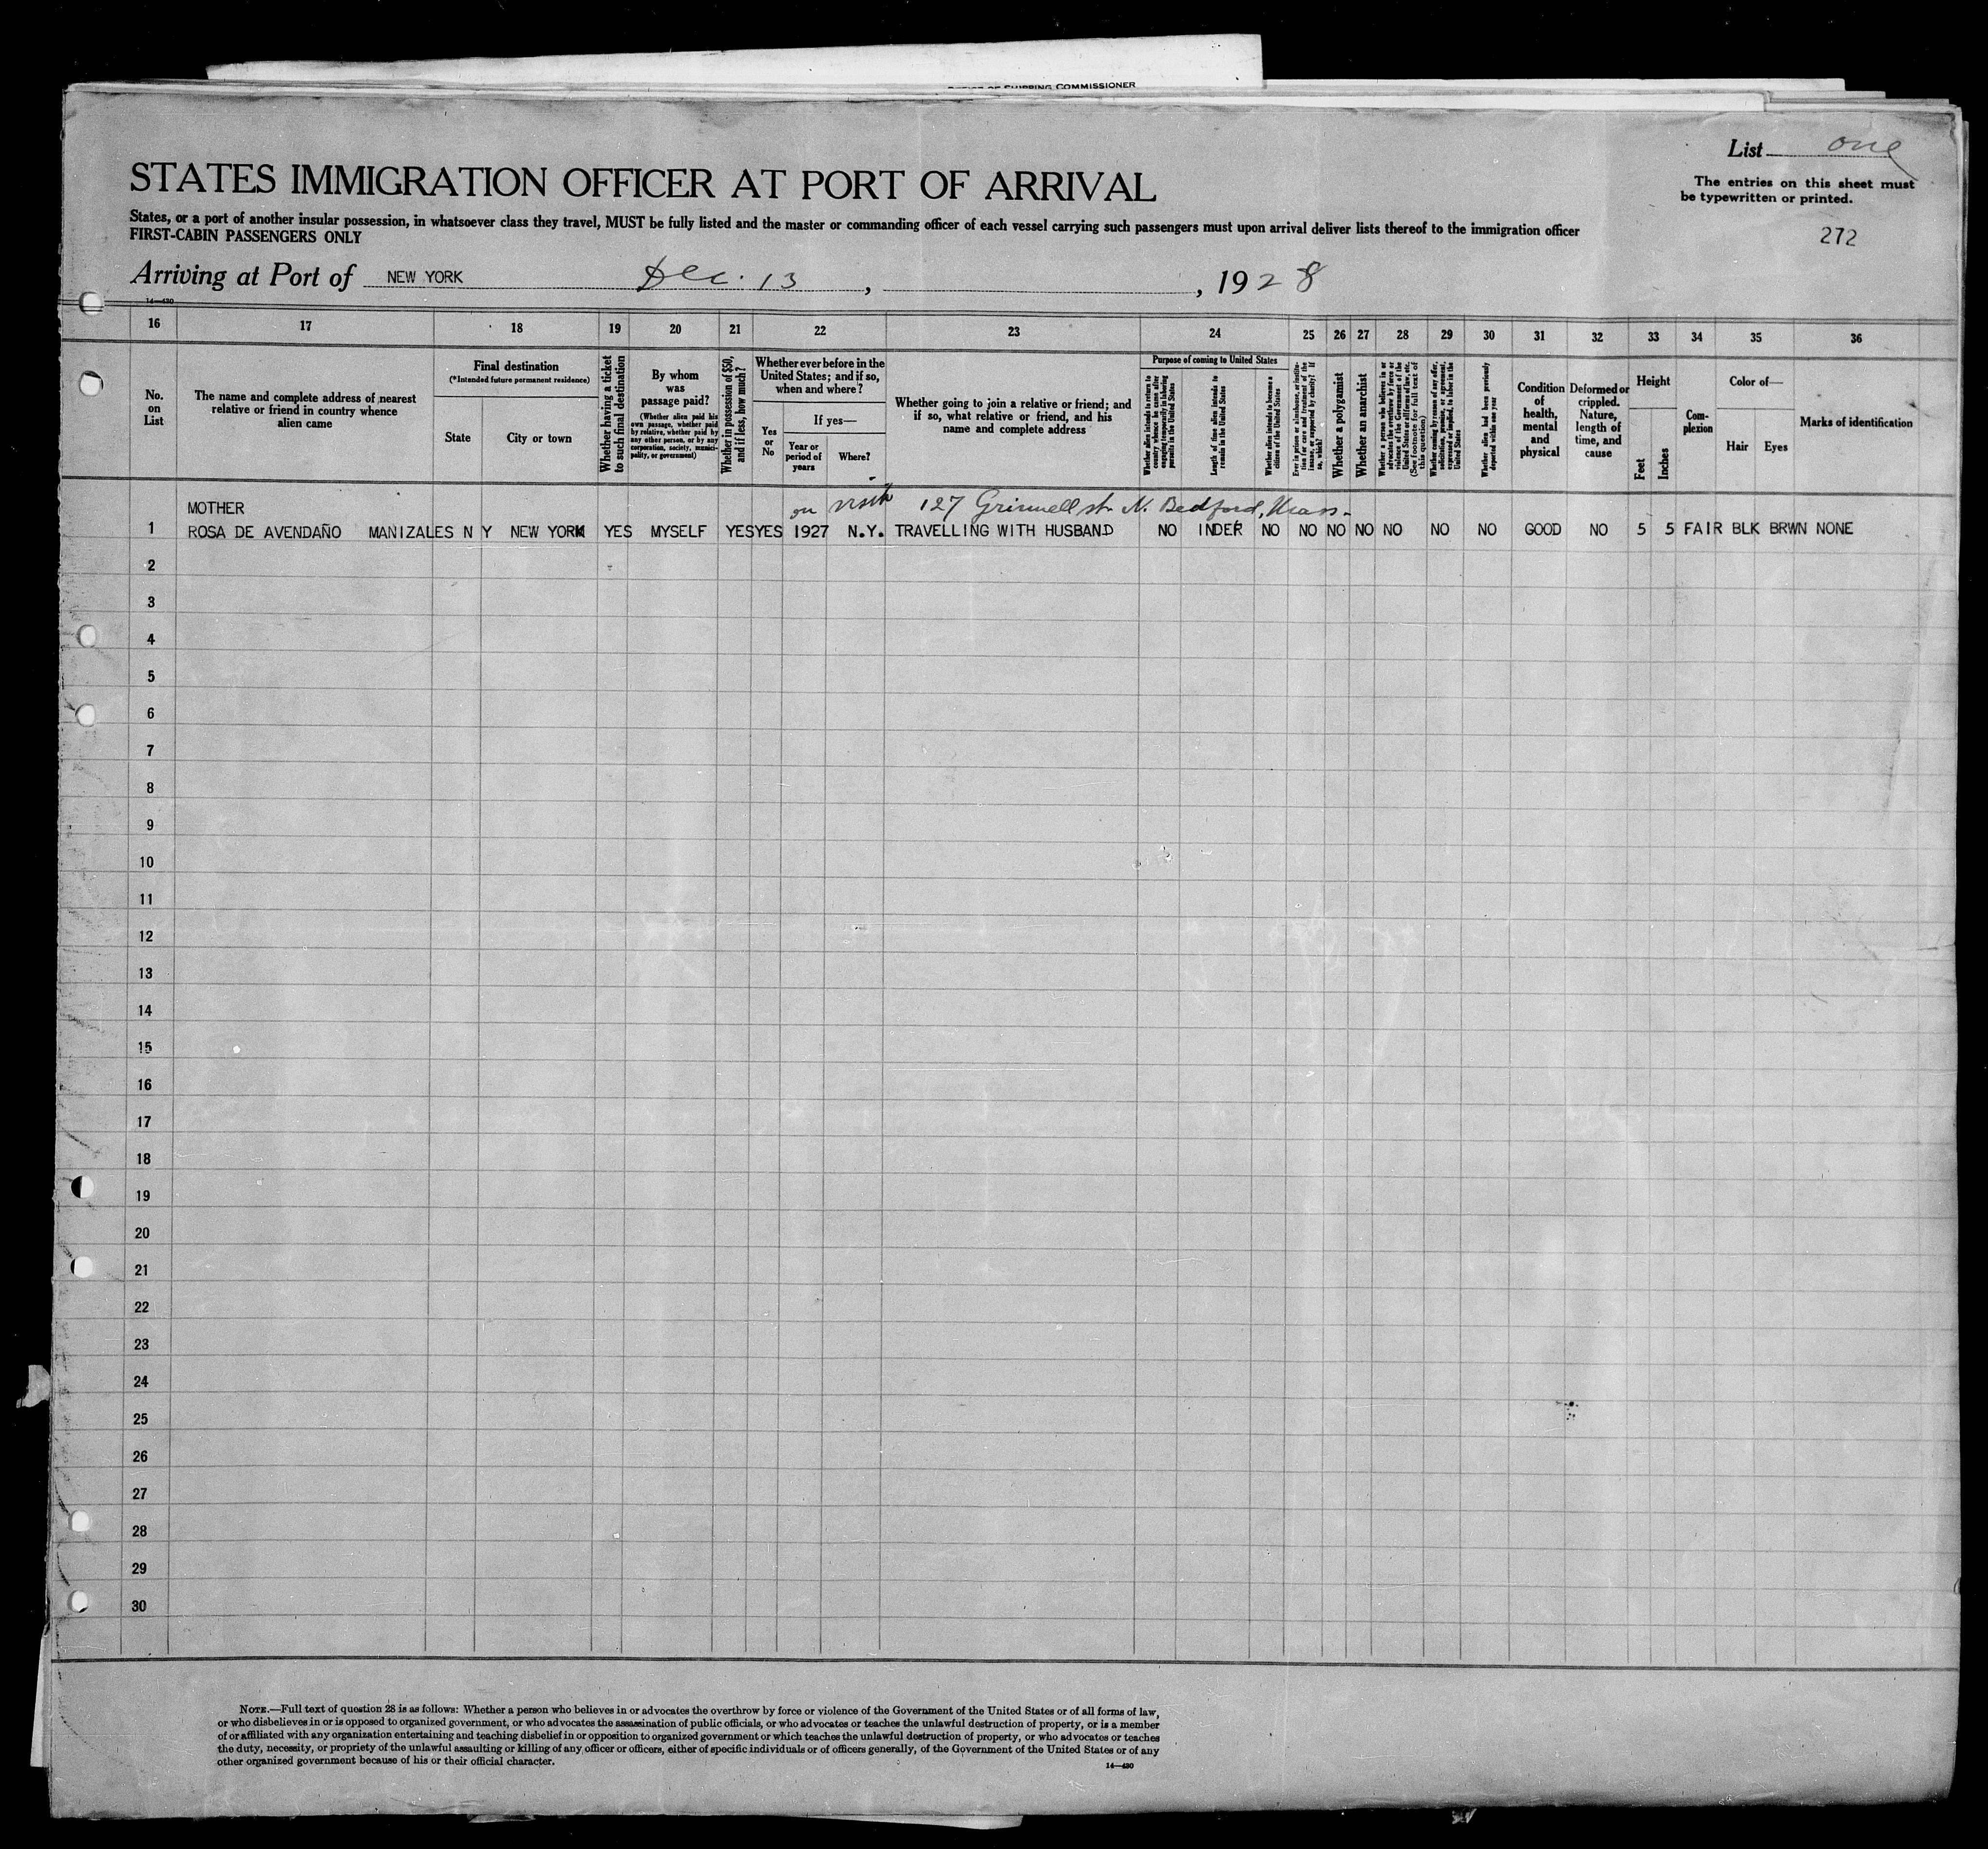 OFFICE OF SHIPPING COMMISSIONER
List one
The entries on this sheet must
be typewritten or printed.
272
STATES IMMIGRATION OFFICER AT PORT OF ARRIVAL
States, or a port of another insular possession, in whatsoever class they travel, MUST be fully listed and the master or commanding officer of each vessel carrying such passengers must upon arrival deliver lists thereof to the immigration officer
FIRST-CABIN PASSENGERS ONLY
Arriving at Port of NEW YORK Dec. 13, , 1928
14—430
16 17 18 19 20 21 22 23 24 25 26 27 28 29 30 31 32 33 34 35 36
No.
on
List
The name and complete address of nearest
relative or friend in country whence
alien came
Final destination
(*Intended future permanent residence)
State
City or town
Whether having a ticket
to such final destination
By whom
was
passage paid?
(Whether alien paid his
own passage, whether paid
by relative, whether paid by
any other person, or by any
corporation, society, munici-
pality, or government)
Whether in possession of $50,
and if less, how much?
Whether ever before in the
United States; and if so,
when and where?
Yes
or
No
If yes—
Year or
period of
years
Where?
Whether going to join a relative or friend; and
if so, what relative or friend, and his
name and complete address
Purpose of coming to United States
Whether alien intends to return to
country whence he came after
engaging temporarily in laboring
pursuits in the United States
Length of time alien intends to
remain in the United States
Whether alien intends to become a
citizen of the United States
Ever in prison or almshouse, or institu-
tion for care and treatment of the
insane, or supported by charity? If
so, which?
Whether a polygamist
Whether an anarchist
Whether a person who believes in or
advocates the overthrow by force or
violence of the Government of the
United States or all forms of law, etc.
(See footnote for full text of
this question)
Whether coming by reason of any offer,
solicitation, promise, or agreement,
expressed or implied, to labor in the
United States
Whether alien had been previously
deported within one year
Condition
of
health,
mental
and
physical
Deformed or
crippled.
Nature,
length of
time, and
cause
Height
Feet
Inches
Com-
plexion
Color of—
Hair
Eyes
Marks of identification
MOTHER on visit 127 Grinnell st. N. Bedford, Mass.
1 ROSA DE AVENDAÑO MANIZALES N Y NEW YORK YES MYSELF YES YES 1927 N.Y. TRAVELLING WITH HUSBAND NO INDEF NO NO NO NO NO NO NO GOOD NO 5 5 FAIR BLK BRWN NONE
2
3
4
5
6
7
8
9
10
11
12
13
14
15
16
17
18
19
20
21
22
23
24
25
26
27
28
29
30
NOTE.—Full text of question 28 is as follows: Whether a person who believes in or advocates the overthrow by force or violence of the Government of the United States or of all forms of law,
or who disbelieves in or is opposed to organized government, or who advocates the assassination of public officials, or who advocates or teaches the unlawful destruction of property, or is a member
of or affiliated with any organization entertaining and teaching disbelief in or opposition to organized government or which teaches the unlawful destruction of property, or who advocates or teaches
the duty, necessity, or propriety of the unlawful assaulting or killing of any officer or officers, either of specific individuals or of officers generally, of the Government of the United States or of any
other organized government because of his or their official character.
14—430